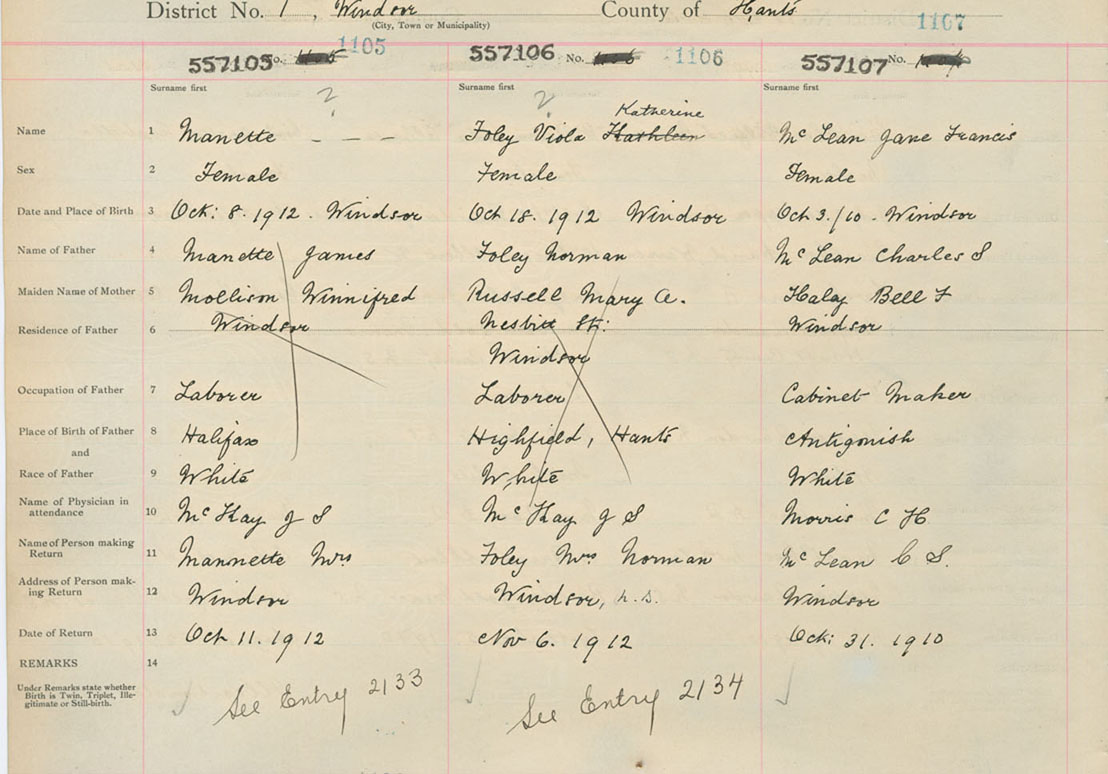 District No. 1, Windsor County of Hants
(City, Town or Municipality)
1107
557105 No. 1105 557106 No. 1106 557107 No.
Surname first Surname first Surname first
? ?
Katherine
Name 1 Manette - - - Foley Viola Kathleen McLean Jane Francis
Sex 2 Female Female Female
Date and Place of Birth 3 Oct: 8. 1912. Windsor Oct 18. 1912 Windsor Oct 3./10 - Windsor
Name of Father 4 Manette James Foley Norman McLean Charles S
Maiden Name of Mother 5 Mollison Winnifred Russell Mary A. Haley Bell F
Residence of Father 6 Windsor Nesbitt St: Windsor
Windsor
Occupation of Father 7 Laborer Laborer Cabinet Maker
Place of Birth of Father 8 Halifax Highfield, Hants Antigonish
and
Race of Father 9 White White White
Name of Physician in
attendance 10 McKay J S McKay J S Morris C H
Name of Person making
Return 11 Mannette Mrs Foley Mrs Norman McLean C S.
Address of Person mak-
ing Return 12 Windsor Windsor, n.s. Windsor
Date of Return 13 Oct 11. 1912 Nov 6. 1912 Oct: 31. 1910
REMARKS 14
Under Remarks state whether
Birth is Twin, Triplet, Ille-
gitimate or Still-birth.
See Entry 2133 See Entry 2134